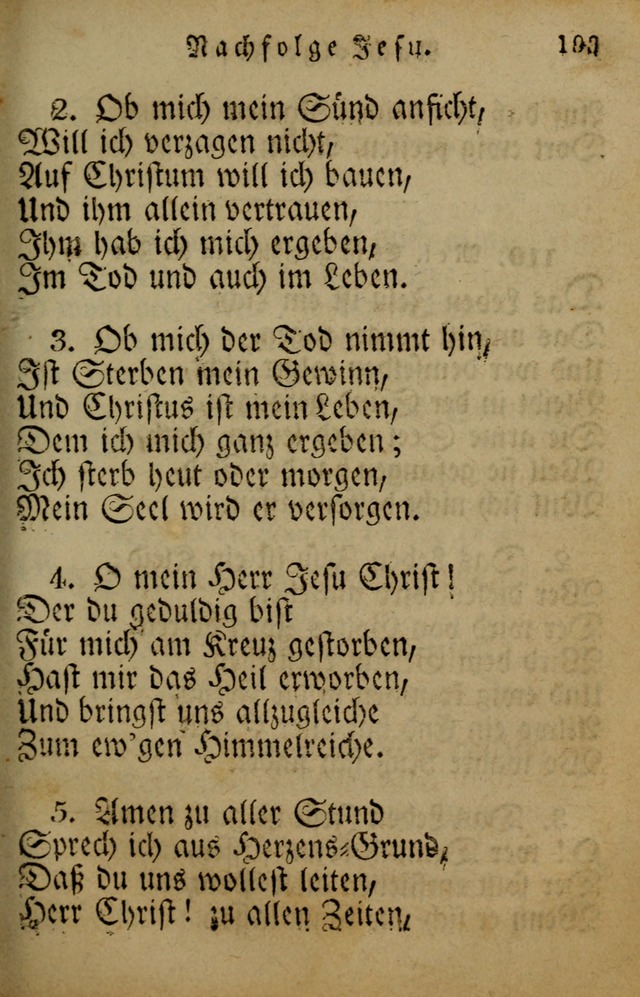 Nachfolge Jesu. 193
2. Ob mich mein Sünd anficht,
Will ich verzagen nicht,
Auf Christum will ich bauen,
Und ihm allein vertrauen,
Ihm hab ich mich ergeben,
Im Tod und auch im Leben.
3. Ob mich der Tod nimmt hin,
Ist Sterben mein Gewinn,
Und Christus ist mein Leben,
Dem ich mich ganz ergeben;
Ich sterb heut oder morgen,
Mein Seel wird er versorgen.
4. O mein Herr Jesu Christ!
Der du geduldig bist
Für mich am Kreuz gestorben,
Hast mir das Heil erworben,
Und bringst uns allzugleiche
Zum ew'gen Himmelreiche.
5. Amen zu aller Stund
Sprech ich aus Herzens-Grund,
Daß du uns wollest leiten,
Herr Christ! zu allen Zeiten,